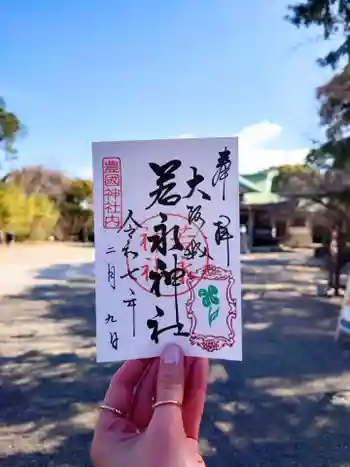 奉拝
大阪城
若永神社
豊國神社内
令和七年
二月九日